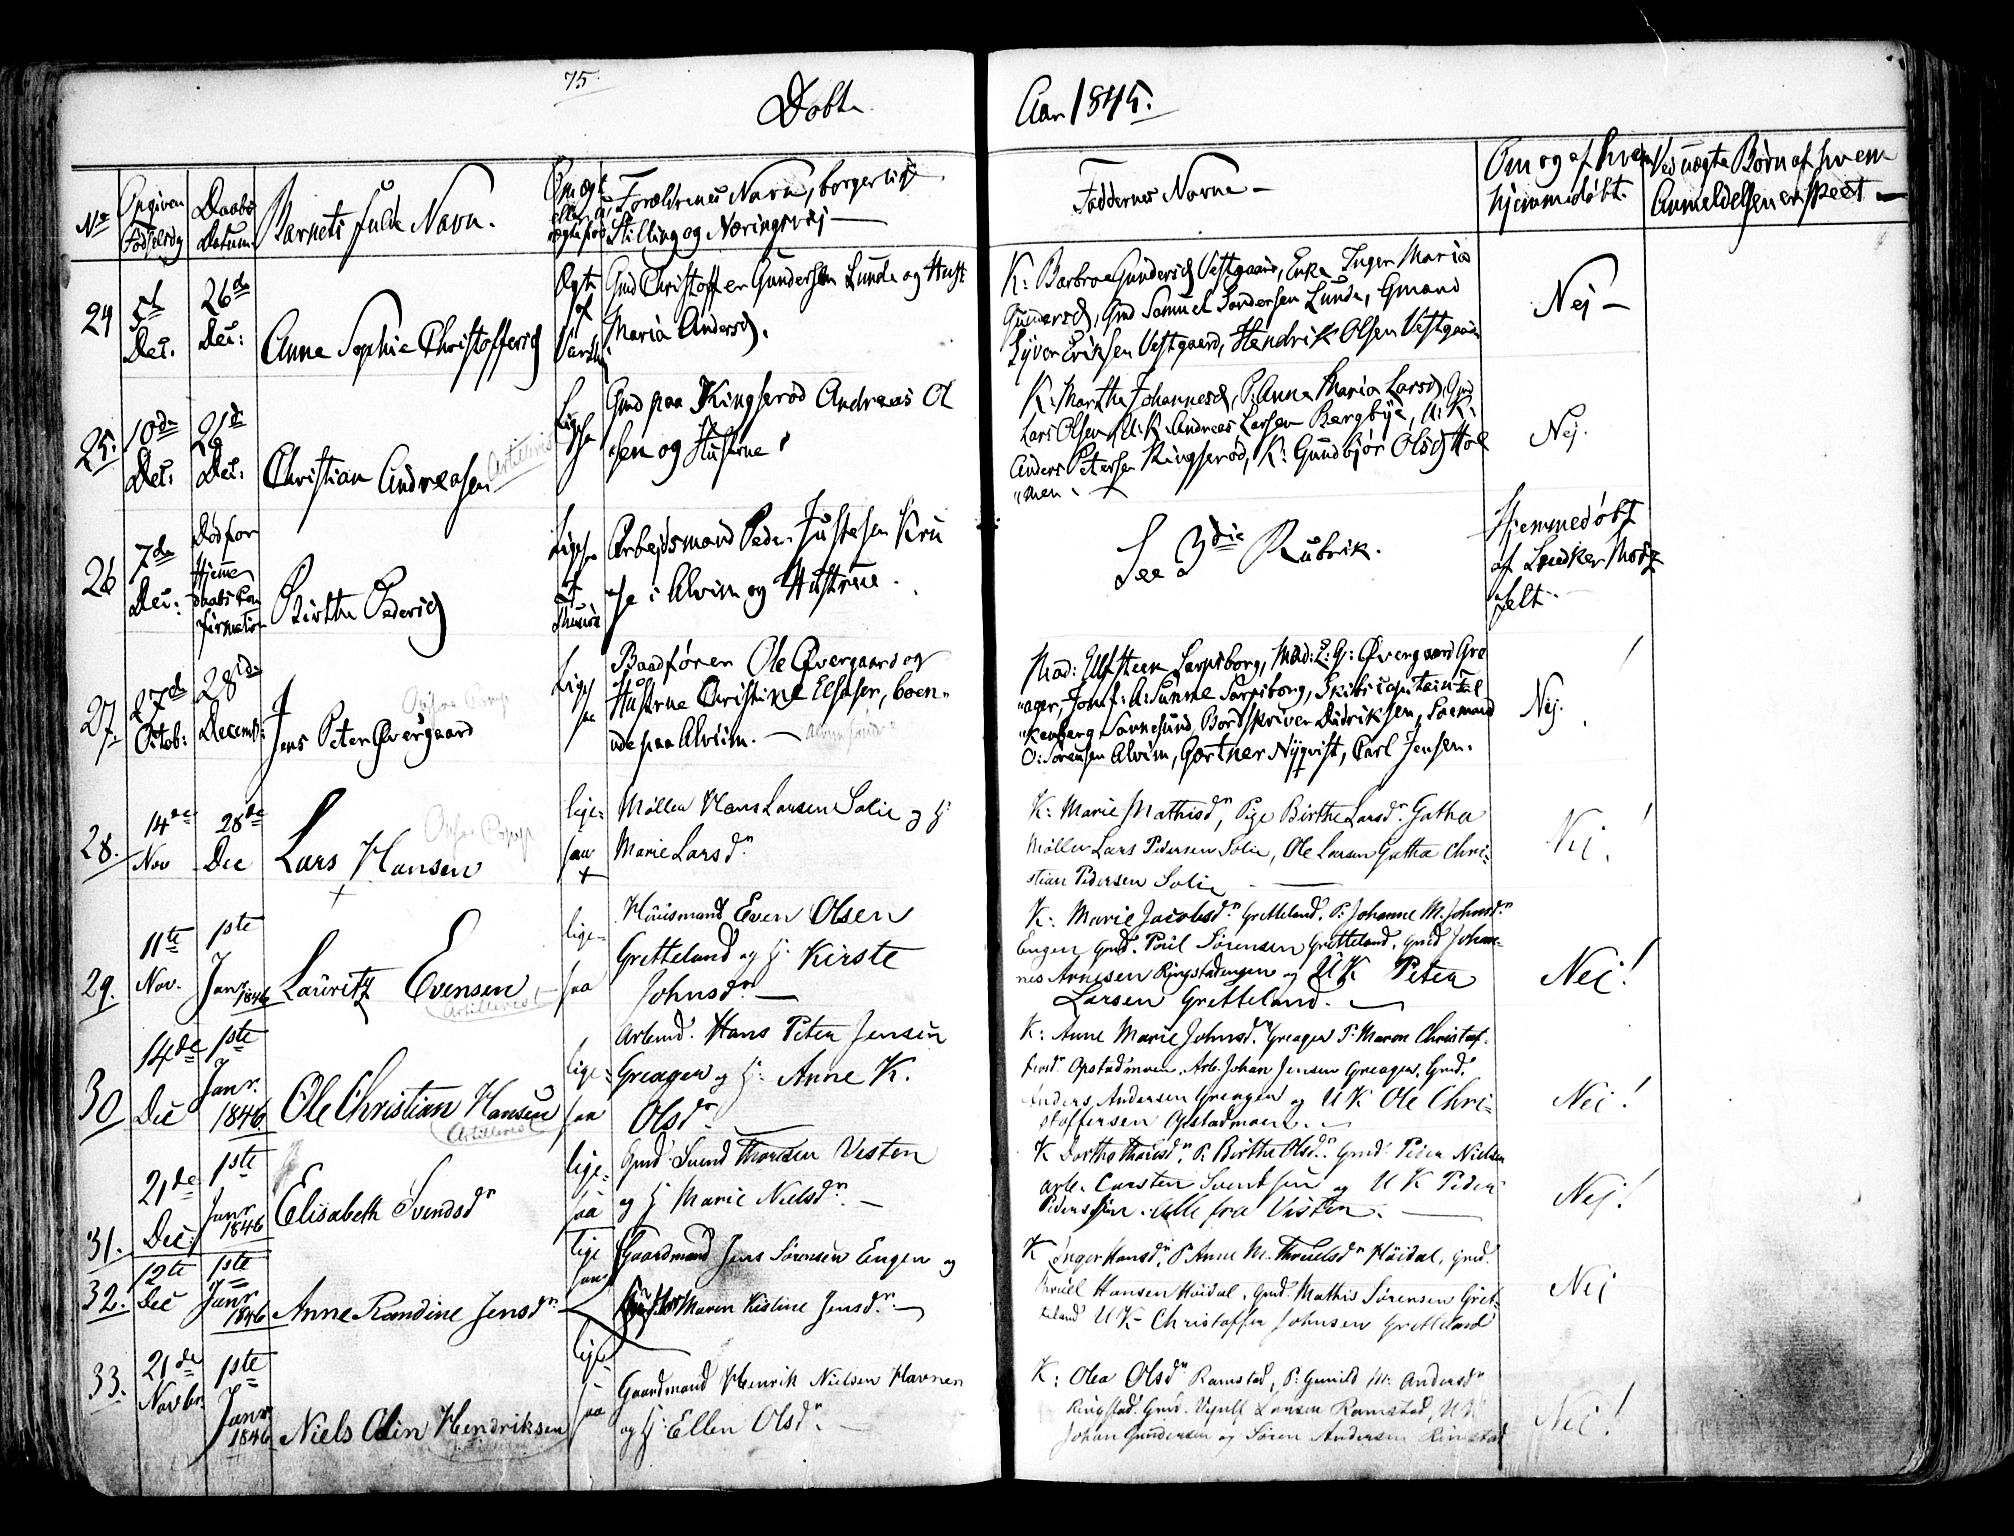 75.
Døbte
Aar 1845.
No
Opgiven Fødselsdag
Daabs Datum
Barnets fulde Navn.
Forældrenes Navn, borgerlig
Stilling og Næringsvej —
Faddernes Navne —
Om og af hvem
hjemmedøbt.
Ved uægte Børn af hvem
Anmeldelsen er skeet —
24
5te
Dec.
26de
Dec:
Anne Sophie Christoffersd
Ægte
Gmd Christoffer Gundersen Lunde og Hust:
Maria Andersd.
K: Barbroe Gundersd Vestgaard, Enke Inger Maria
Gundersd, Gmd Samuel Gundersen Lunde, Gmand
Syver Eriksen Vestgaard, Hendrik Olsen Vestgaard
Nej —
25.
10de
Dec:
21de
Dec:
Christian Andreasen
Artillerist
Ligesaa
Gmd paa Kingserød Andreas Ol
sen og Hustrue
K: Martha Johannesd, P. Anna Maria Larsd, Gmd
Lars Olsen, U:K. Andreas Larsen Bergbye, U:K:
Anders Petersen Kingserød, K: Gundbjør Olsd Hol
"men.
Nej.
26
7de
Dec:
Død før
Hjemme
daabs Con
firmation
Birthe Pedersd
Ligesaa
Arbejdsmand Peder Justesen Kru
"se i Alvim og Hustrue.
See 3die Rubrik.
Hjemmedøbt
af
27.
27de
Octob:
28de
Decemb:
Jens Peter Øvergaard
Ligesaa
Baadfører Ole Øvergaard og
Hustrue Christine Elssesen, boen-
ude paa Alvim. —
Mad: Ulfsteen Sarpsborg, Mad: L: G: Øvergaard Gre
"ager, Jomf: A: Sunme Sarpsborg, Skibscapitain Fal
"kenberg Sannesund, Bordskriver Didriksen, Sømand
O: Sørensen Alvim, Gartner Nyqvist, Carl Jensen.
Nej.
28.
14de
Nov
28de
Dec
Lars Hansen
lige-
saa
Møller Hans Larsen Solie og H:
Marie Larsdr.
K: Marie Mathisdr, Pige Birthe Larsdr. Gatha
Møller Lars Pedersen Solie, Ole Larsen Gatha Chri-
stian Pedersen Solie
Nei!
29.
11te
Nov.
1ste
Janr.
1846
Lauritz Evensen
Artillerist
lige-
saa
Huusmand Even Olsen
Gretteland og H: Kirste
Johnsdr. —
K: Marie Jacobsdr. Gretteland. P: Johanne M. Johnsdr.
Engen Gmd. Poul Sørensen Gretteland. Gmd Johan-
nes Arnesen Ringstadengen og U K Peter
Larsen Gretteland. —
Nei!
30
14de
Dec
1ste
Janr.
1846.
Ole Christian Hansen
Artillerist
lige-
saa
Arbmd. Hans Peter Jensen
Greager og H: Anne K.
Olsdr.
K: Anne Marie Johnsdr. Greager P. Maren Christof-
fersdr. Opstadmoen. Arb. Johan Jensen Greager. Gmd.
Anders Andersen Greager og U K Ole Chri-
stoffersen Opstadmoen. —
Nei!
31.
21de
Dec:
1ste
Janr
1846
Elisabeth Svendsdr
lige-
saa
Gmd. Svend Thoresen Visten
og H Marie Nielsdr. —
K Dorthe Thoresdr, P. Birthe Olsdr. Gmd: Peder Nielsen
arb. Carsten Svendsen og U K Peder
Pedersen. Alle fra Visten. —
Nej!
32.
12te
Dec
1ste
Janr
1846
Anne Randine Jensdr.
lige
saa
Gaardmand Jens Sørensen Engen og
Maren Kistine Jensdr. —
K Inger Hansdr, P. Anne M. Thruelsdr Høidal, Gmd.
Thruell Hansen Høidal. Gmd: Mathis Sørensen Gret-
teland U K Christoffer Johnsen Gretteland
Nei
33.
21de
Novbr.
1ste
Janr.
1846
Niels Odin Hendriksen
lige
saa
Gaardmand Henrik Nielsen Havnen
og H: Ellen Olsdr. —
K: Olea Olsdr Ramstad, P: Gunild M: Andersdr
Ringstad. Gmd. Larsen Ramstad, U K
Johan Gundersen og Søren Andersen Rinstad
Nei!